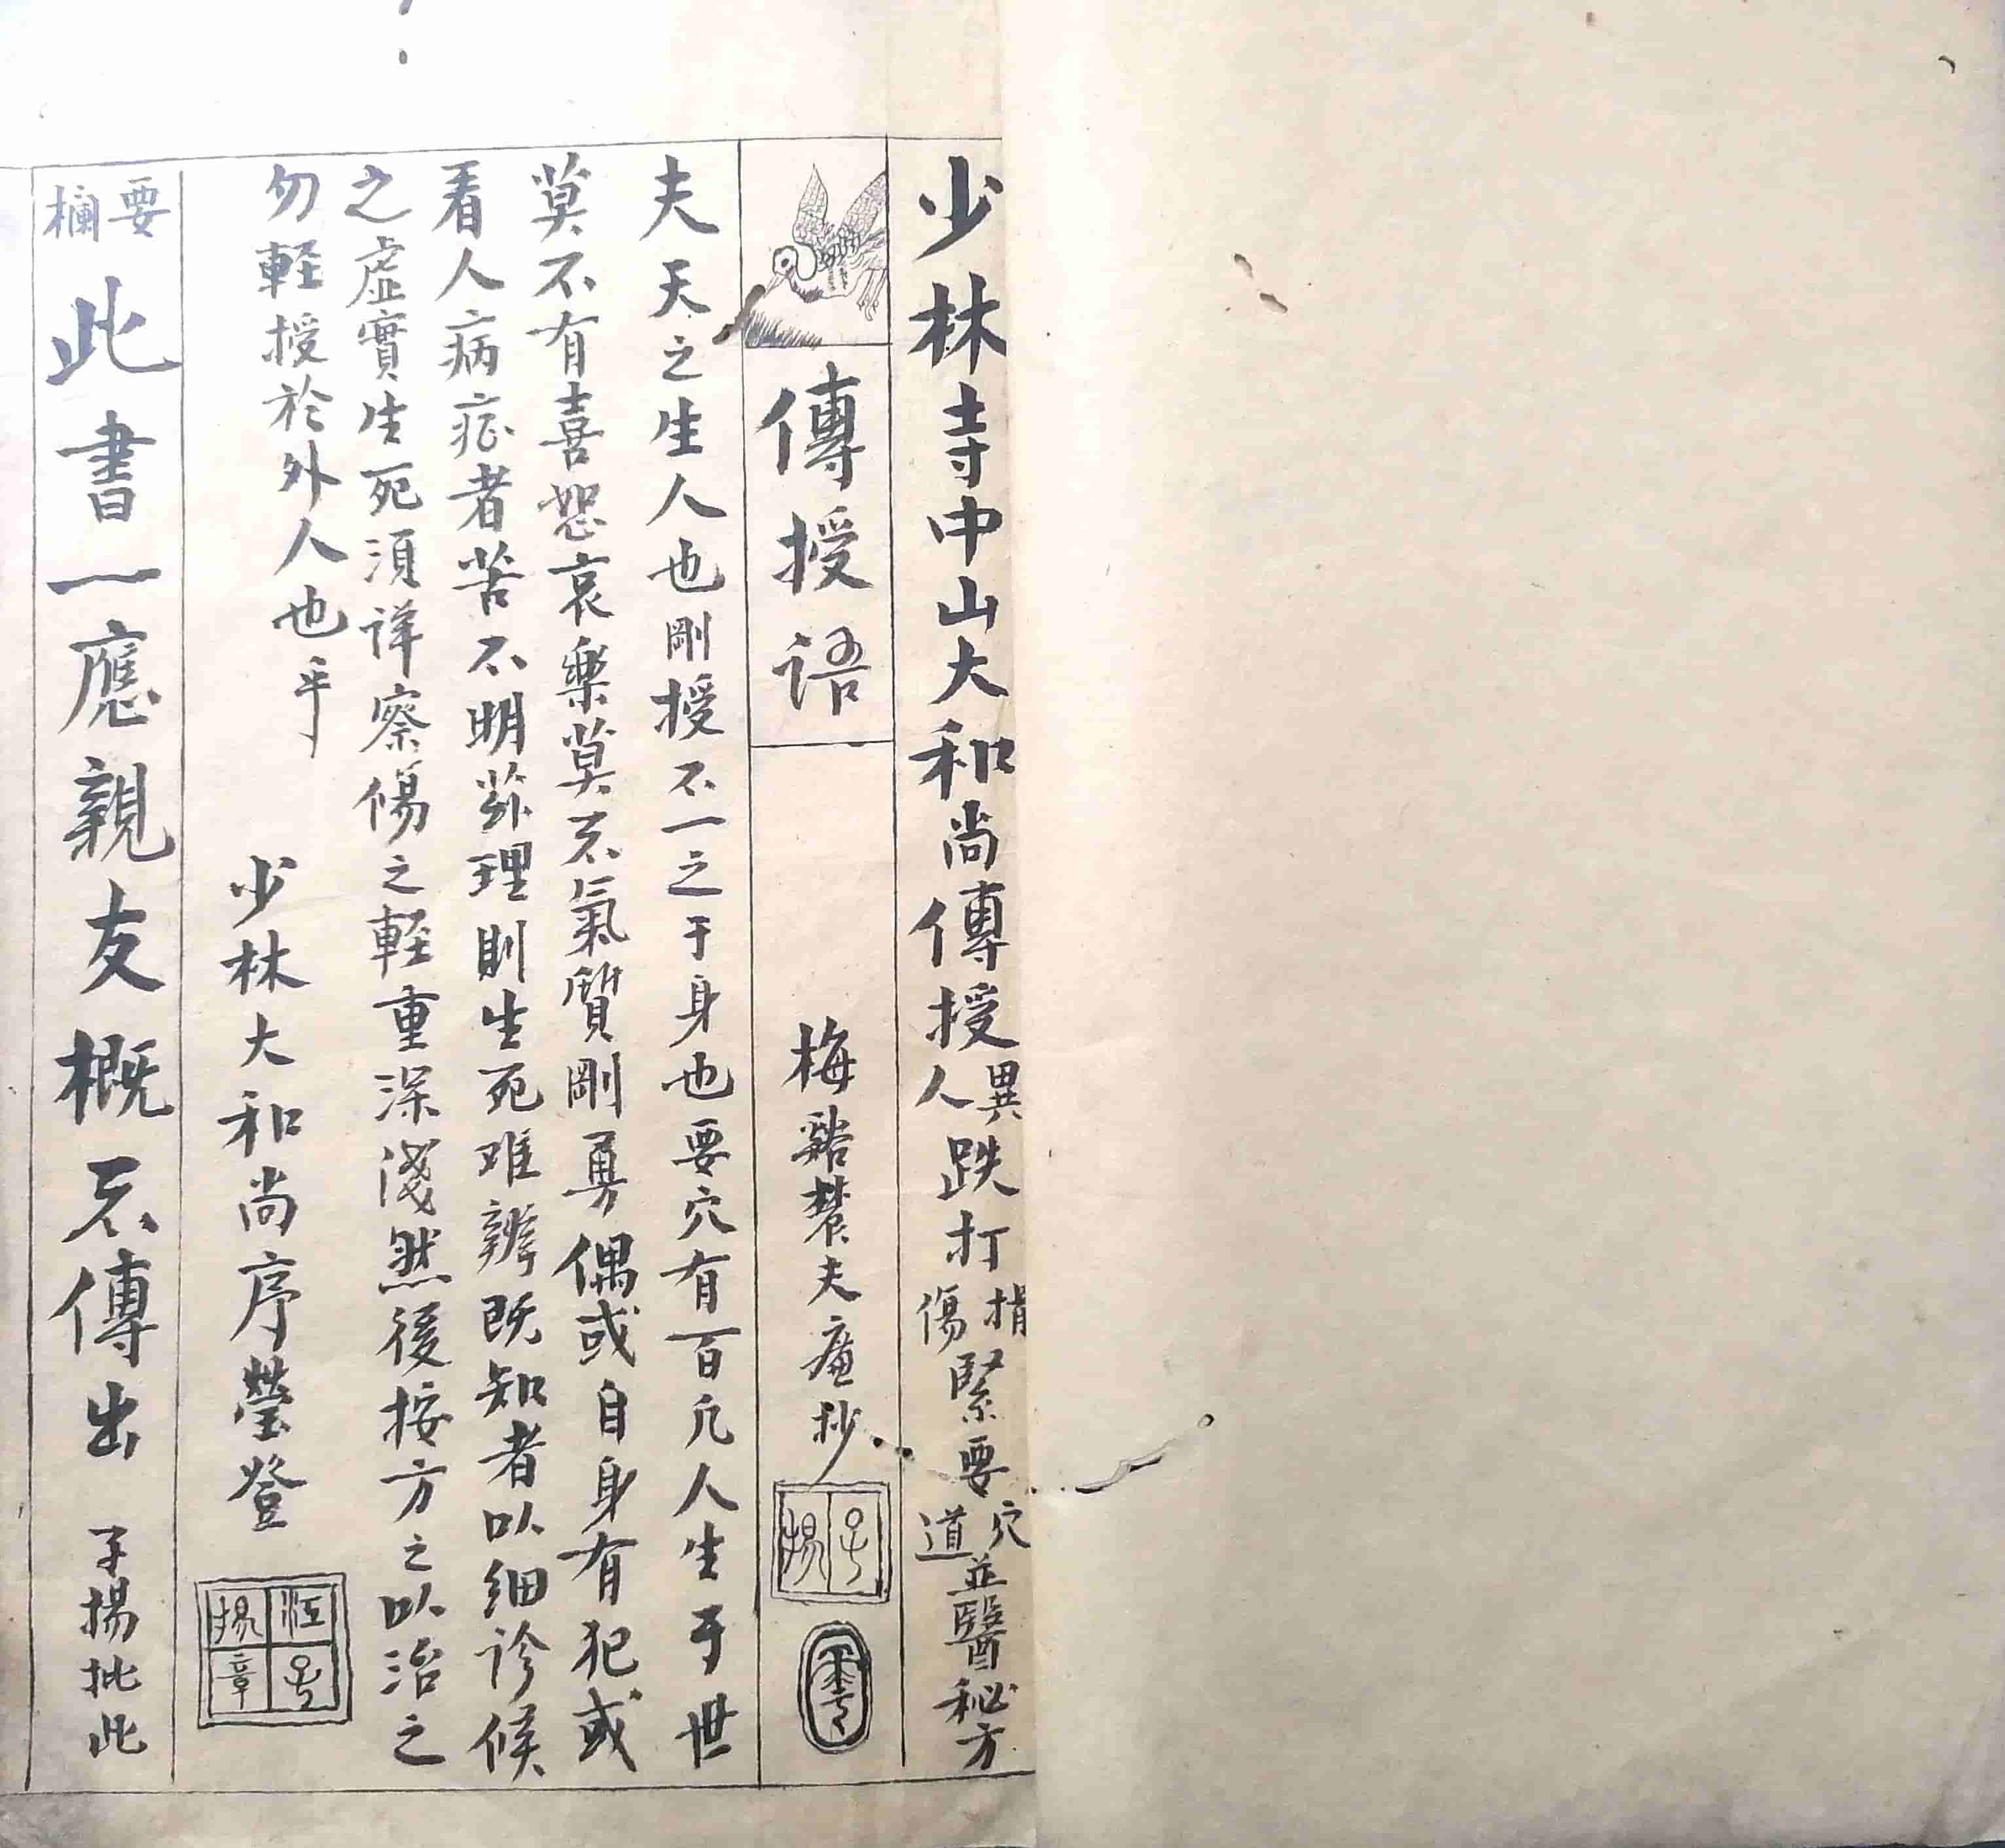 少林寺中山大和尚傳授異人跌打損傷緊要穴道並醫秘方
傳授语
梅谿農夫廬抄
子揚
夫天之生人也剛授不一之于身也要穴有百凡人生于世
莫不有喜怒哀樂莫不氣質剛勇偶或自身有犯或
看人病症者苦不明茲理則生死难辨既知者以细诊候
之虛實生死須詳察傷之輕重深淺然後按方之以治之
勿輕授於外人也乎
少林大和尚序瑩登
江子揚章
要欄
此書一應親友概不傳出
子揚批此